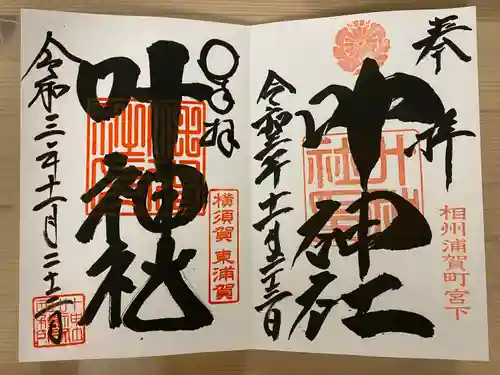 奉拝
叶神社
相州浦賀町宮下
令和三年十一月二十三日
奉拝
叶神社
横須賀 東浦賀
令和三年十一月二十三日